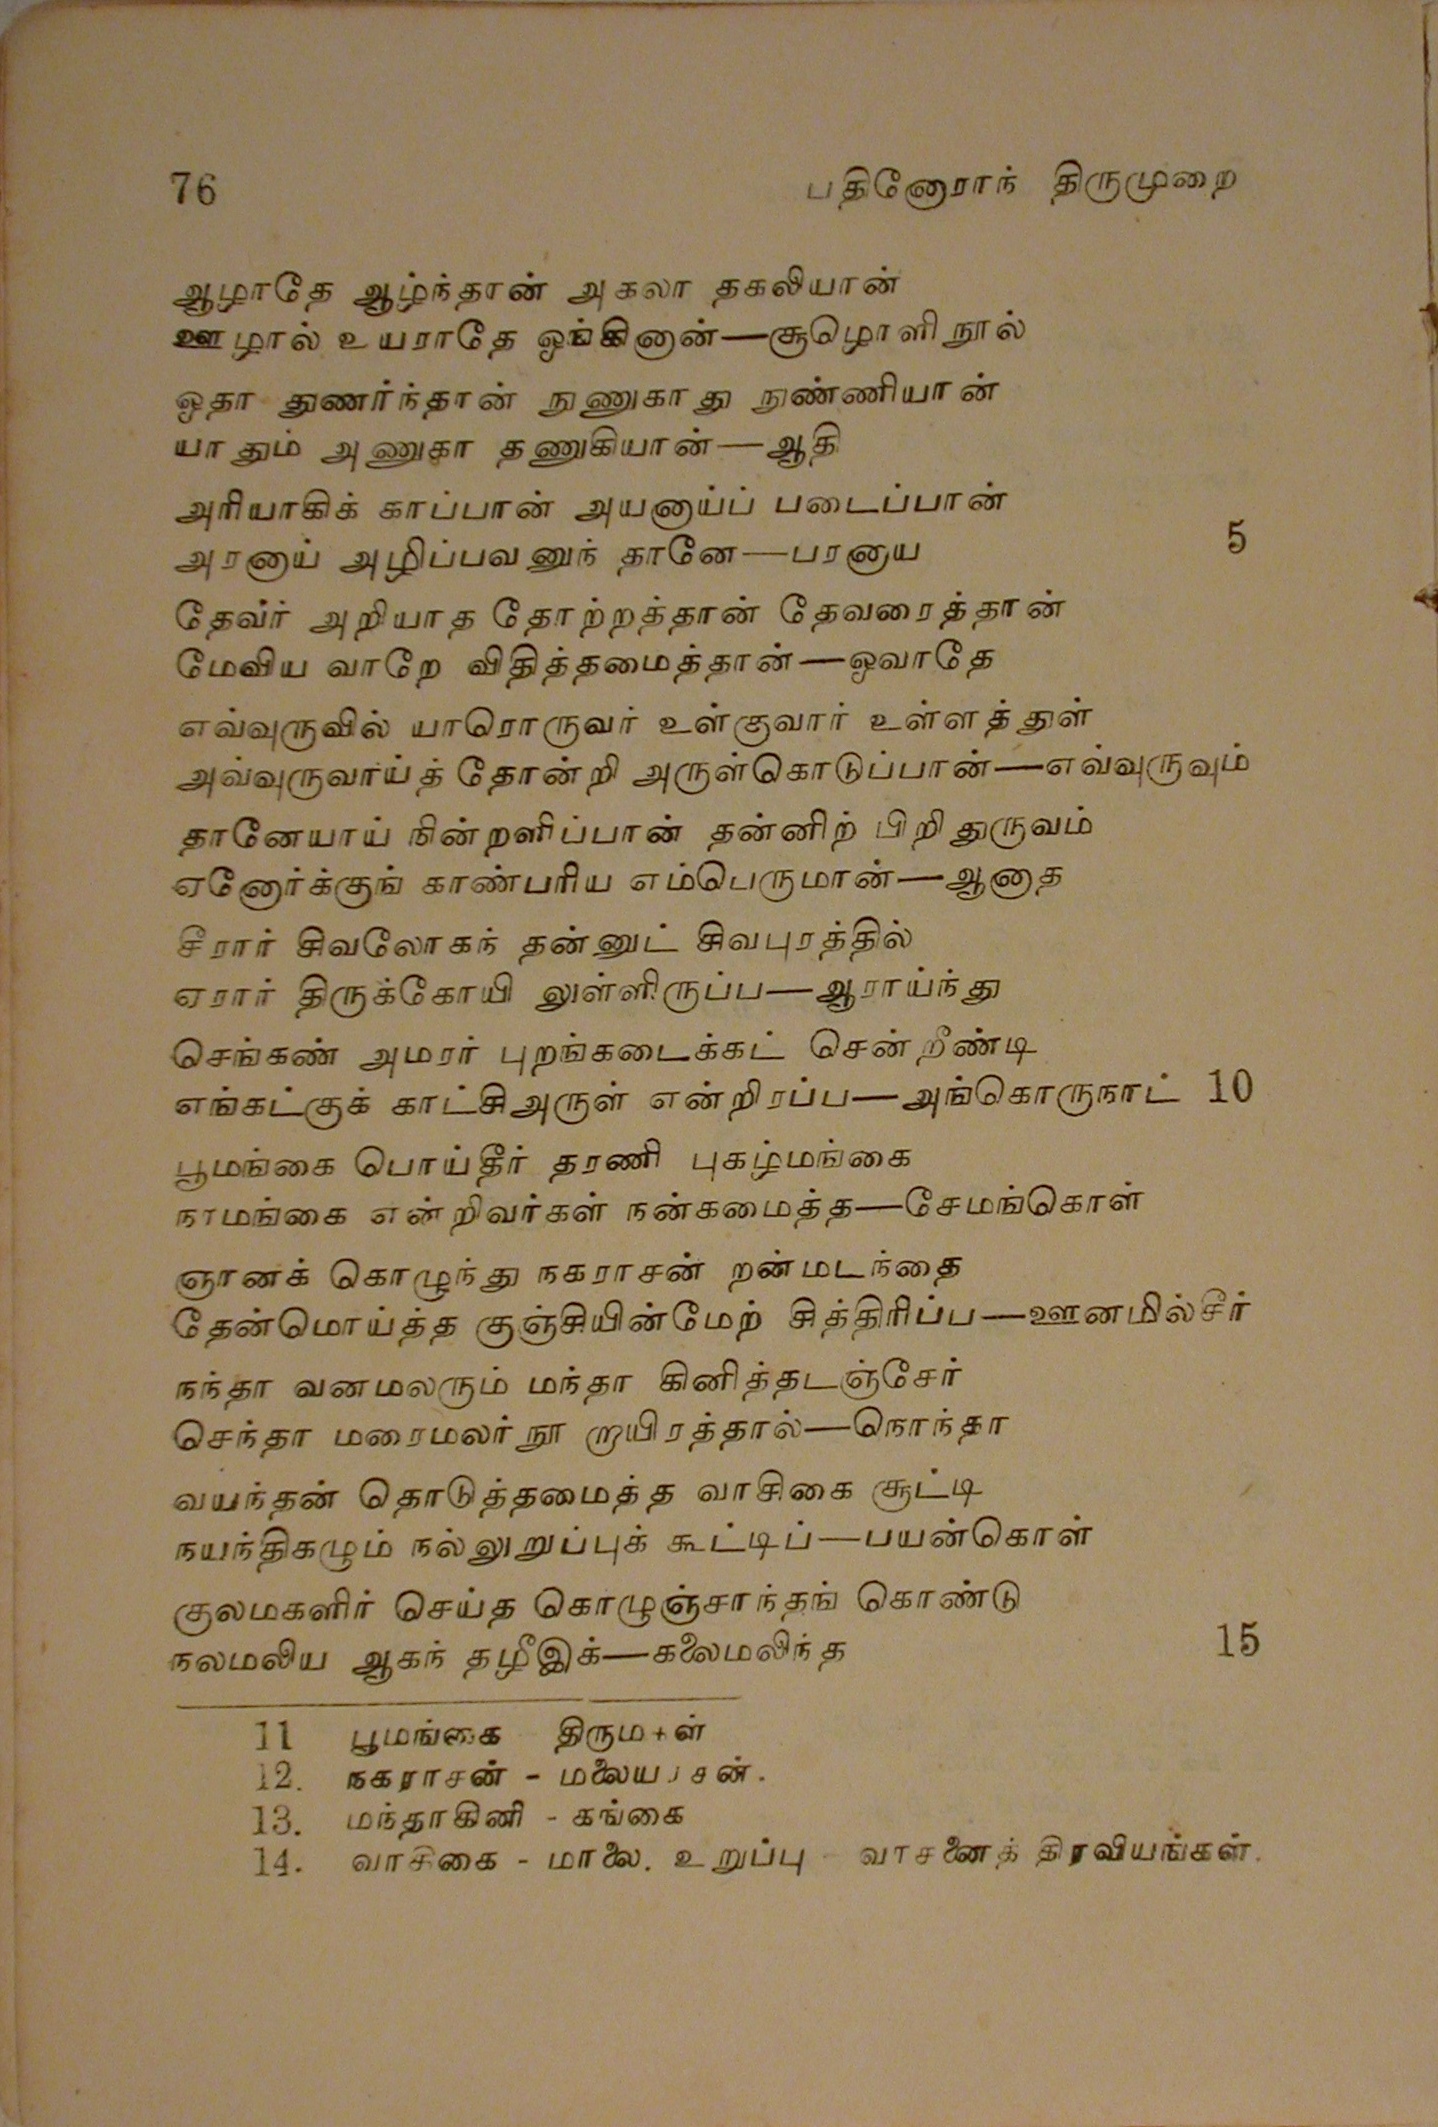 76 பதினோராந் திருமுறை
ஆழாதே ஆழ்ந்தான் அகலா தகலியான்
ஊழால் உயராதே ஓங்கினான்—சூழொளி நூல்
ஓதா துணர்ந்தான் நுணுகாது நுண்ணியான்
யாதும் அணுகா தணுகியான்—ஆதி
அரியாகிக் காப்பான் அயனாய்ப் படைப்பான்
அரனாய் அழிப்பவனுந் தானே—பரனாய 5
தேவர் அறியாத தோற்றத்தான் தேவரைத்தான்
மேவிய வாறே விதித்தமைத்தான்—ஓவாதே
எவ்வுருவில் யாரொருவர் உள்குவார் உள்ளத்துள்
அவ்வுருவாய்த் தோன்றி அருள்கொடுப்பான்—எவ்வுருவும்
தானேயாய் நின்றளிப்பான் தன்னிற் பிறிதுருவம்
ஏனோர்க்குங் காண்பரிய எம்பெருமான்—ஆனாத
சீரார் சிவலோகந் தன்னுட் சிவபுரத்தில்
ஏரார் திருக்கோயி லுள்ளிருப்ப—ஆராய்ந்து
செங்கண் அமரர் புறங்கடைக்கட் சென்றீண்டி
எங்கட்குக் காட்சிஅருள் என்றிரப்ப—அங்கொருநாட் 10
பூமங்கை பொய்தீர் தரணி புகழ்மங்கை
நாமங்கை என்றிவர்கள் நன்கமைத்த—சேமங்கொள்
ஞானக் கொழுந்து நகராசன் றன்மடந்தை
தேன்மொய்த்த குஞ்சியின்மேற் சித்திரிப்ப—ஊனமில்சீர்
நந்தா வனமலரும் மந்தா கினித்தடஞ்சேர்
செந்தா மரைமலர்நூ றாயிரத்தால்—நொந்தா
வயந்தன் தொடுத்தமைத்த வாசிகை சூட்டி
நயந்திகழும் நல்லுறுப்புக் கூட்டிப்—பயன்கொள்
குலமகளிர் செய்த கொழுஞ்சாந்தங் கொண்டு
நலமலிய ஆகந் தழீஇக்—கலைமலிந்த 15
11 பூமங்கை திருமகள்
12. நகராசன் - மலையரசன்.
13. மந்தாகினி - கங்கை
14. வாசிகை - மாலை. உறுப்பு - வாசனைத் திரவியங்கள்.